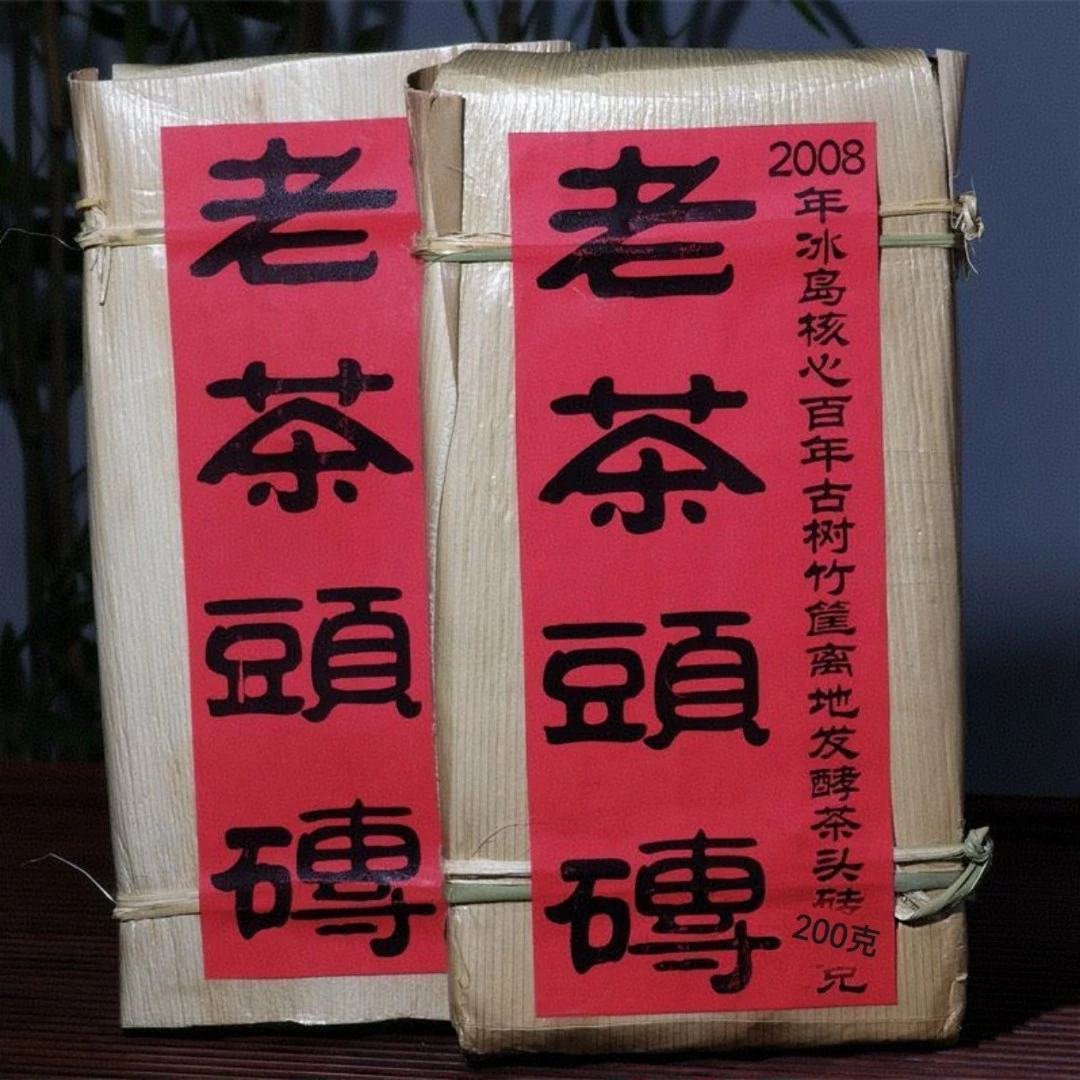 老茶頭磚
老茶頭磚
2008年冰岛核心百年古树竹筐离地发酵茶头砖
200克